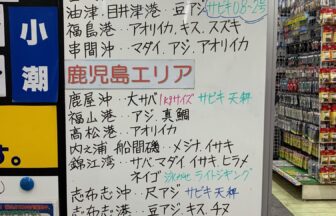 小潮
す。
油津、目井津港‥豆アジ サビキ0.8~2号
福島港‥アオリイカ、キス、スズキ
串間沖‥マダイ、アジ、アオリイカ
鹿児島エリア
鹿屋沖‥大サバ 1kgサイズ サビキ 天秤
福山港‥アジ、真鯛
高松港‥アオリイカ
内之浦 船間磯‥メジナ、イサキ
錦江湾‥サバ マダイ イサキ ヒラメ
ネイゴ 泳がせ ライトジギング
志布志沖‥尺アジ サビキ 天秤
志布志港‥豆アジ、キス、チヌ